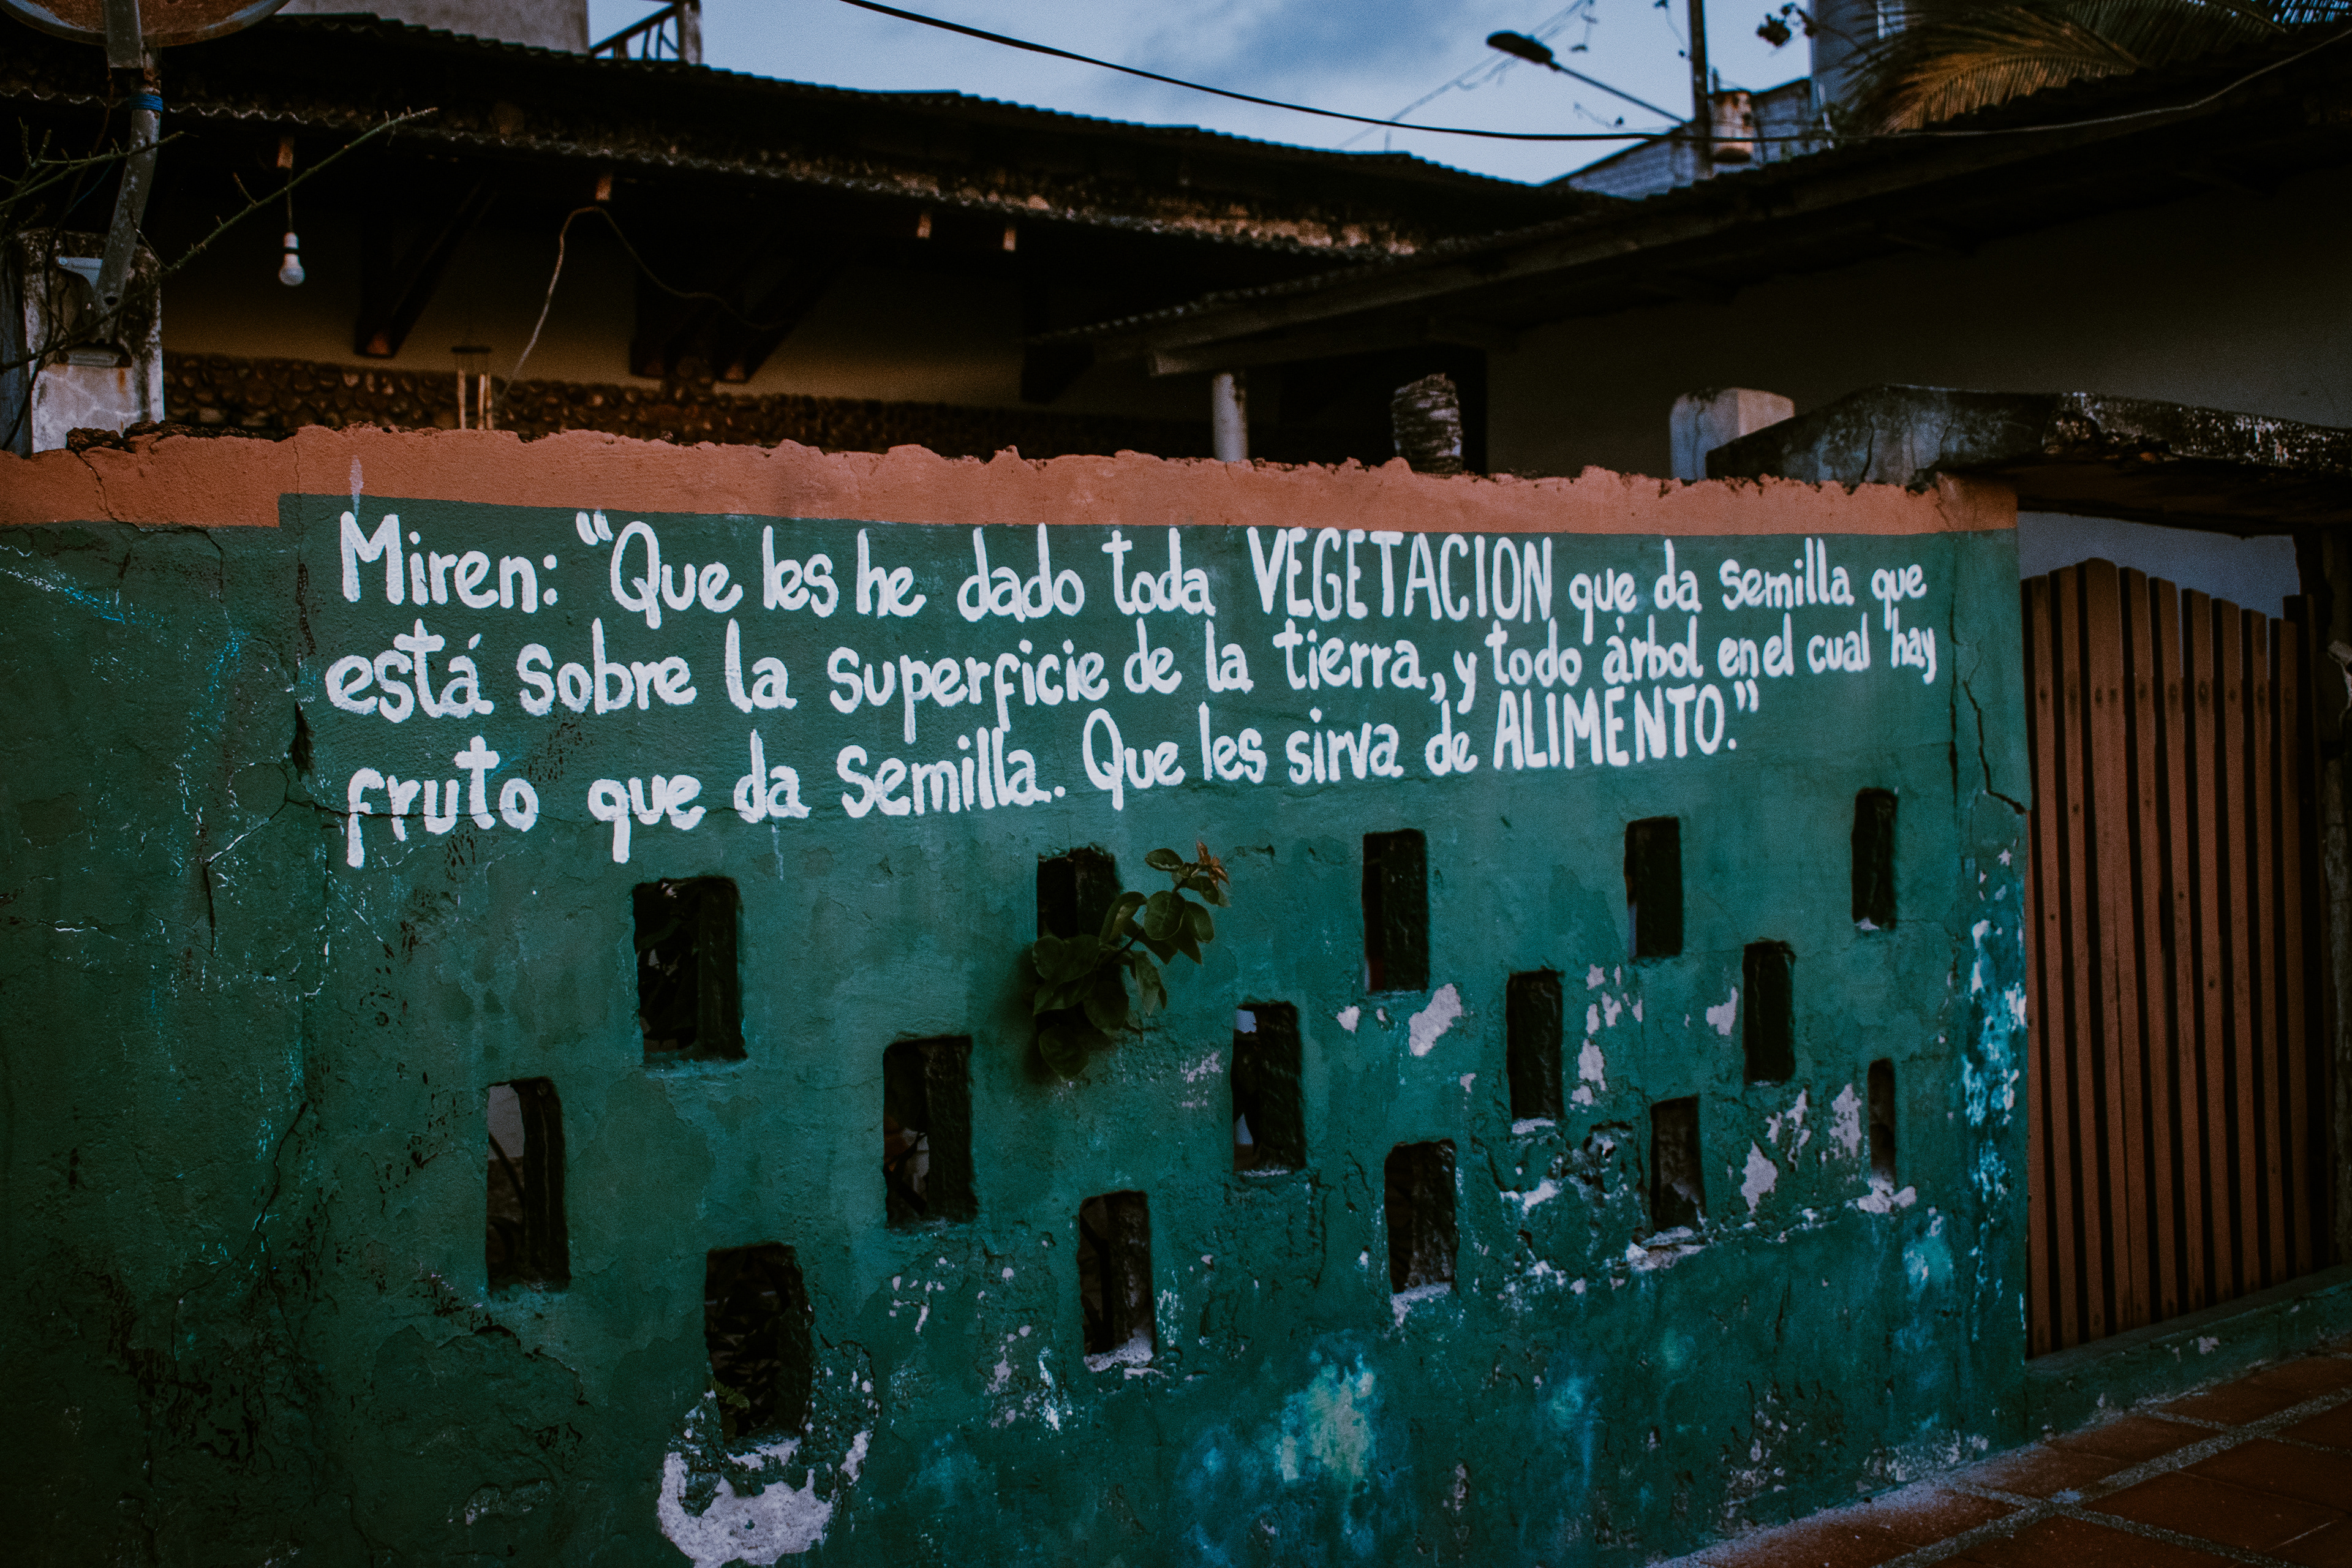 Miren: "Que les he dado toda VEGETACION que da semilla que
está sobre la superficie de la tierra, y todo árbol en el cual hay
fruto que da semilla. Que les sirva de ALIMENTO."